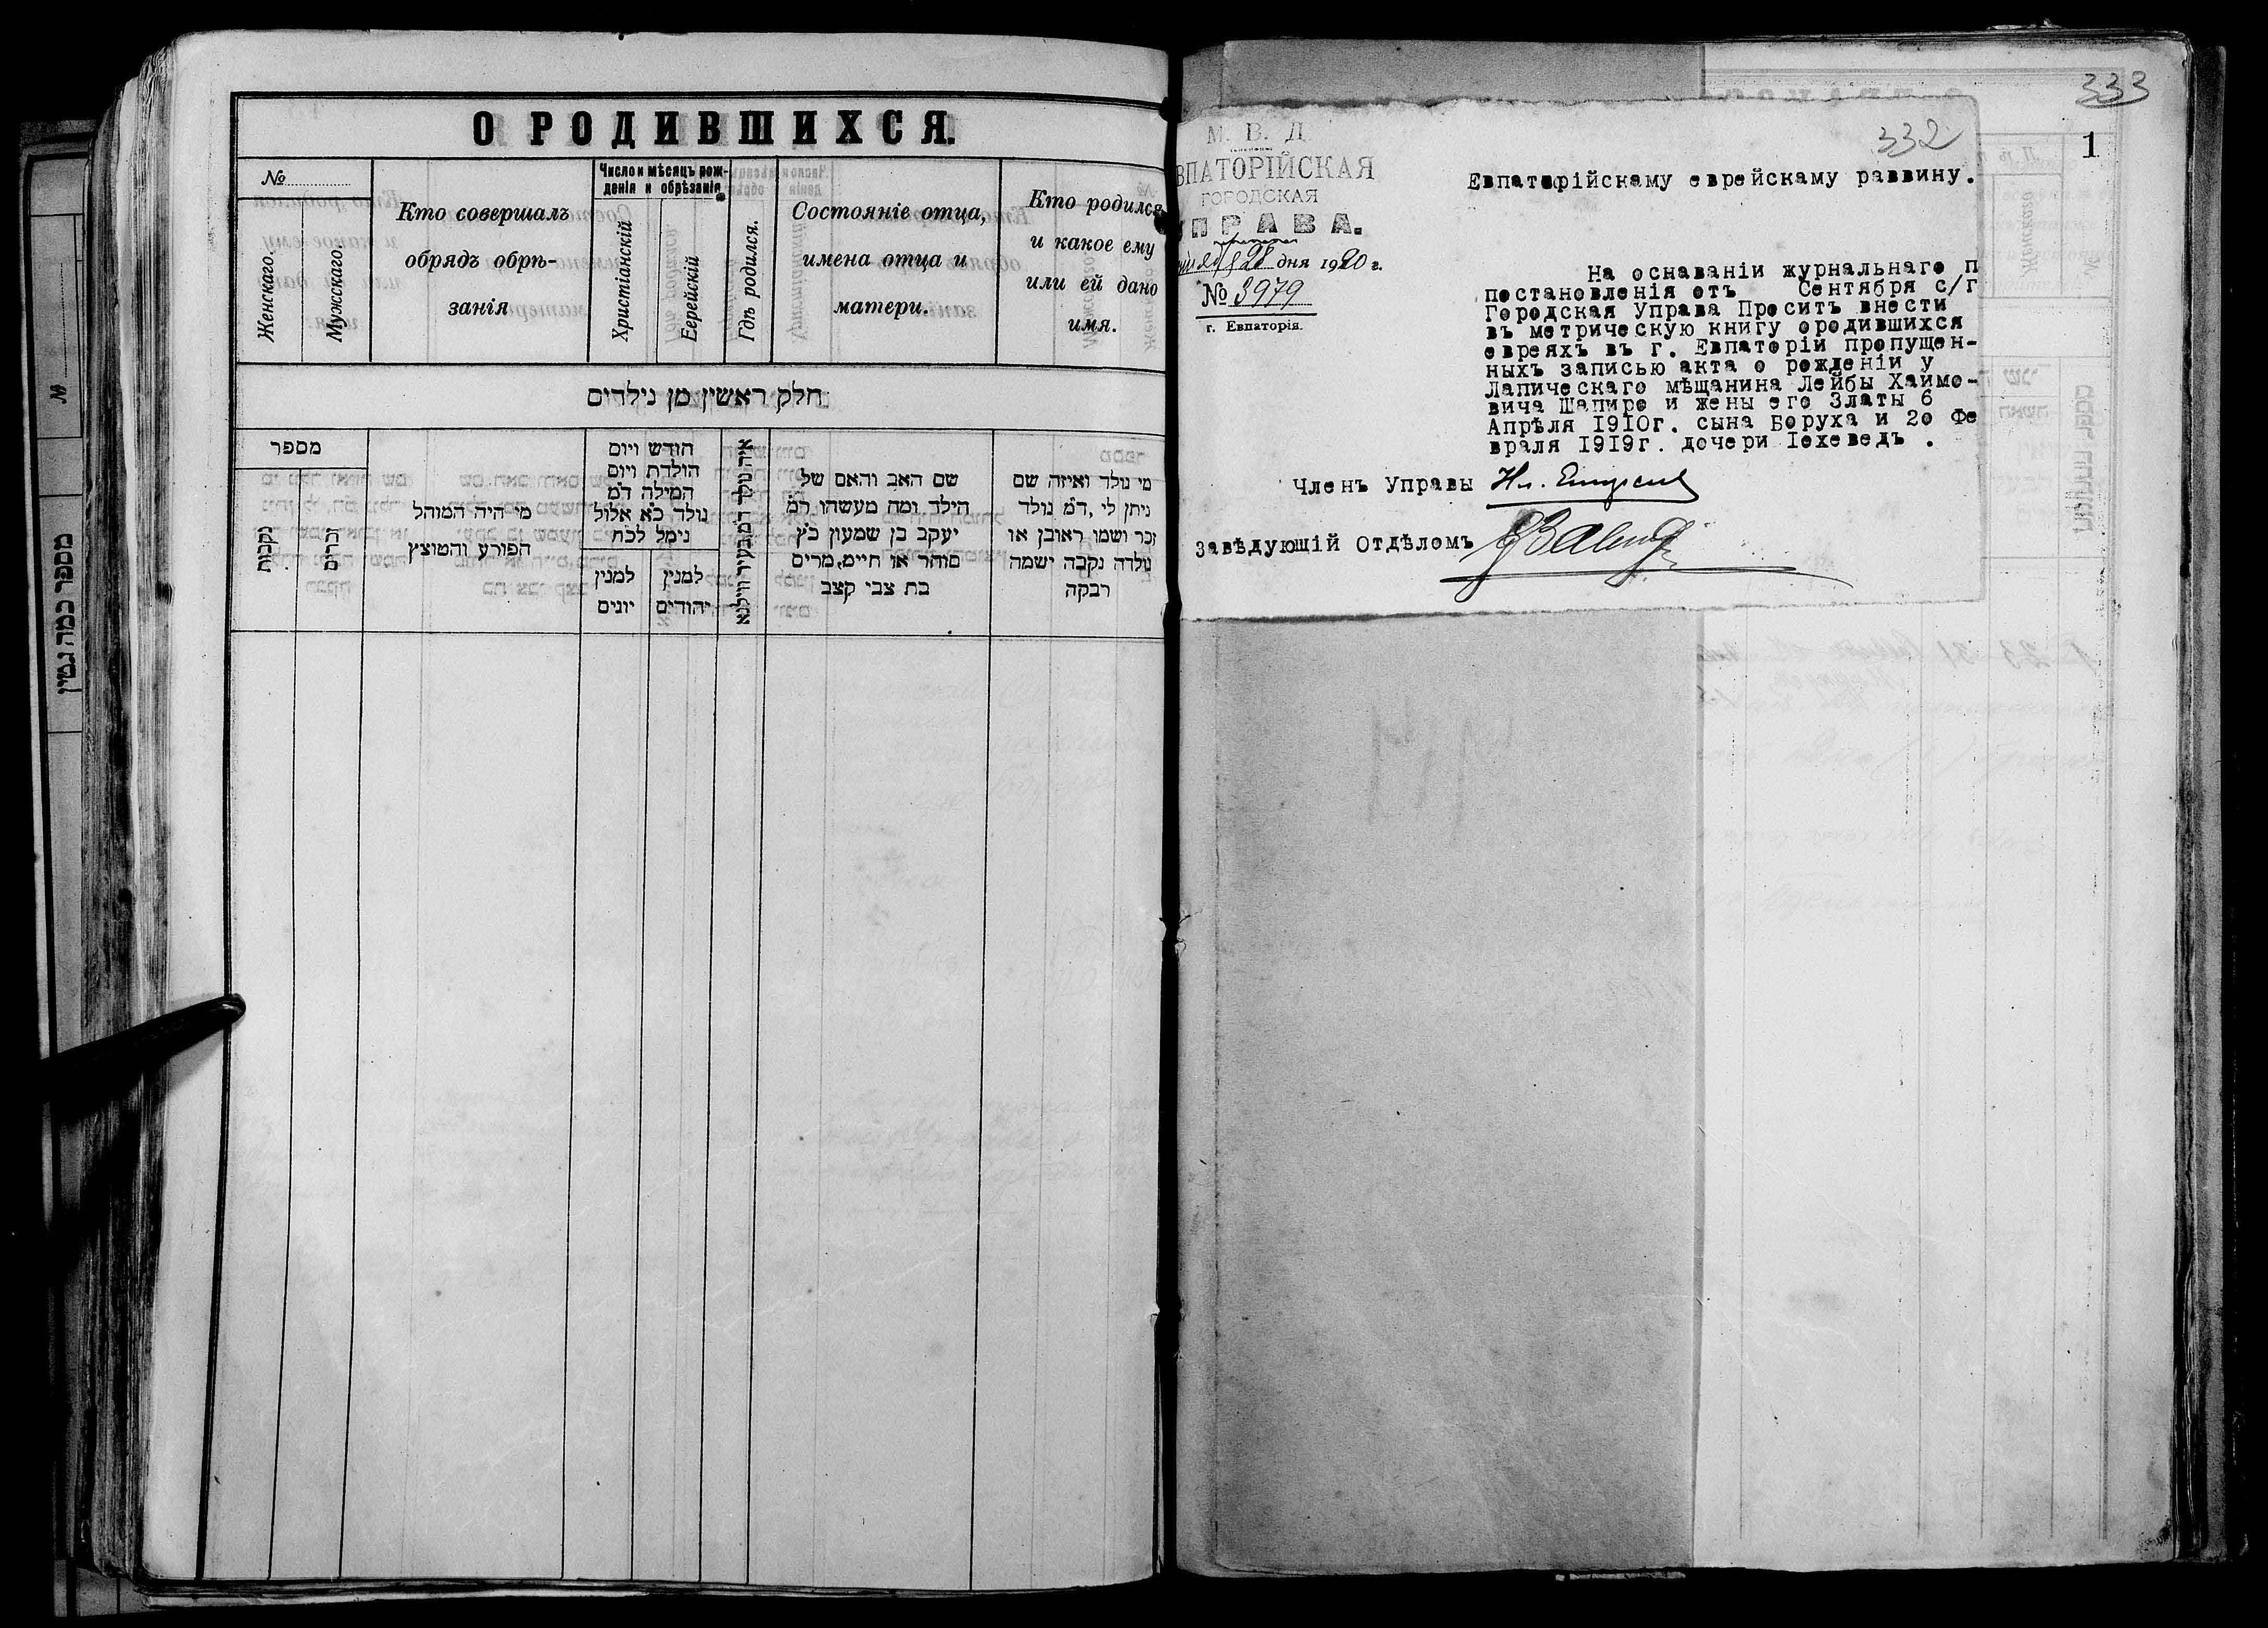 О РОДИВШИХСЯ.
№
Женскаго.
Мужскаго.
Кто совершалъ
обрядъ обрѣ-
занія
Число и мѣсяцъ рож-
денія и обрѣзанія
Христіанскій
Еерейскій
Гдѣ родился.
Состояніе отца,
имена отца и
матери.
Кто родился
и какое ему
или ей дано
имя.
חלק ראשין מן נילדים
מספר
נקבות
זכרים
מי היה המוהל
הפורע והמוצץ
חודש ויום
הולדת ויום
המילה ד״מ
נולד כ״א אלול
נימל לכ״ח
למנין
יונים
למנין
יהודים
שם האב והאם של
הילד ומה מעשהו ד״מ
יעקב בן שמעון כ״ץ
סוחר או חיים, מרים
בת צבי קצב
מי נולד ואיזה שם
ניתן לו, ד״מ נולד
זכר ושמו ראובן או
נולדה נקבה ישמה
רבקה
№
333
1
332
М. В. Д.
ВПАТОРІЙСКАЯ
ГОРОДСКАЯ
ПРАВА.
28 дня 1920 г.
№ 3979
г. Евпаторія.
Евпаторійскаму еврейскаму раввину.
На оснаваніи журнальнаго п
постановленія отъ Сентября с/г
Городская Управа Просить внести
въ метрическую книгу ородившихся
евреяхъ въ г. Евпаторіи пропущен-
ныхъ записью акта о рожденіи у
Лапическаго мѣщанина Лейбы Хаимо-
вича Шапиро и жены его Златы 6
Апрѣля 1910г. сына Боруха и 20 Фе
враля 1919г. дочери Іохеведъ .
Членъ Управы
Завѣдующій Отдѣломъ